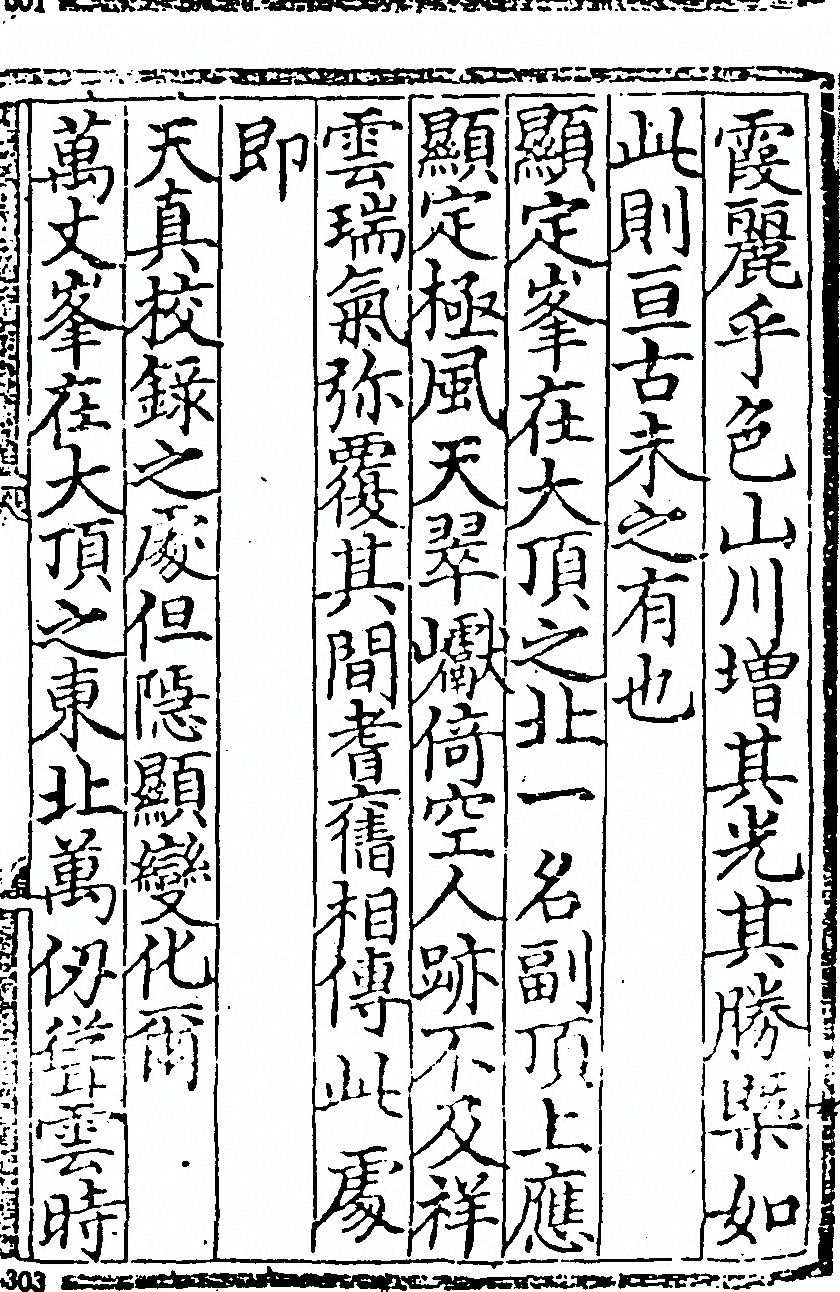 霞麗乎色山川增其光其勝槩如
此則亘古未之有也
顯定峯在大頂之北一名副頂上應
顯定極風天翠巘倚空人跡不及祥
雲瑞氣弥覆其間耆舊相傳此處
即
天真校錄之處但隱顯變化爾
萬丈峯在大頂之東北萬仞聳雲時
303